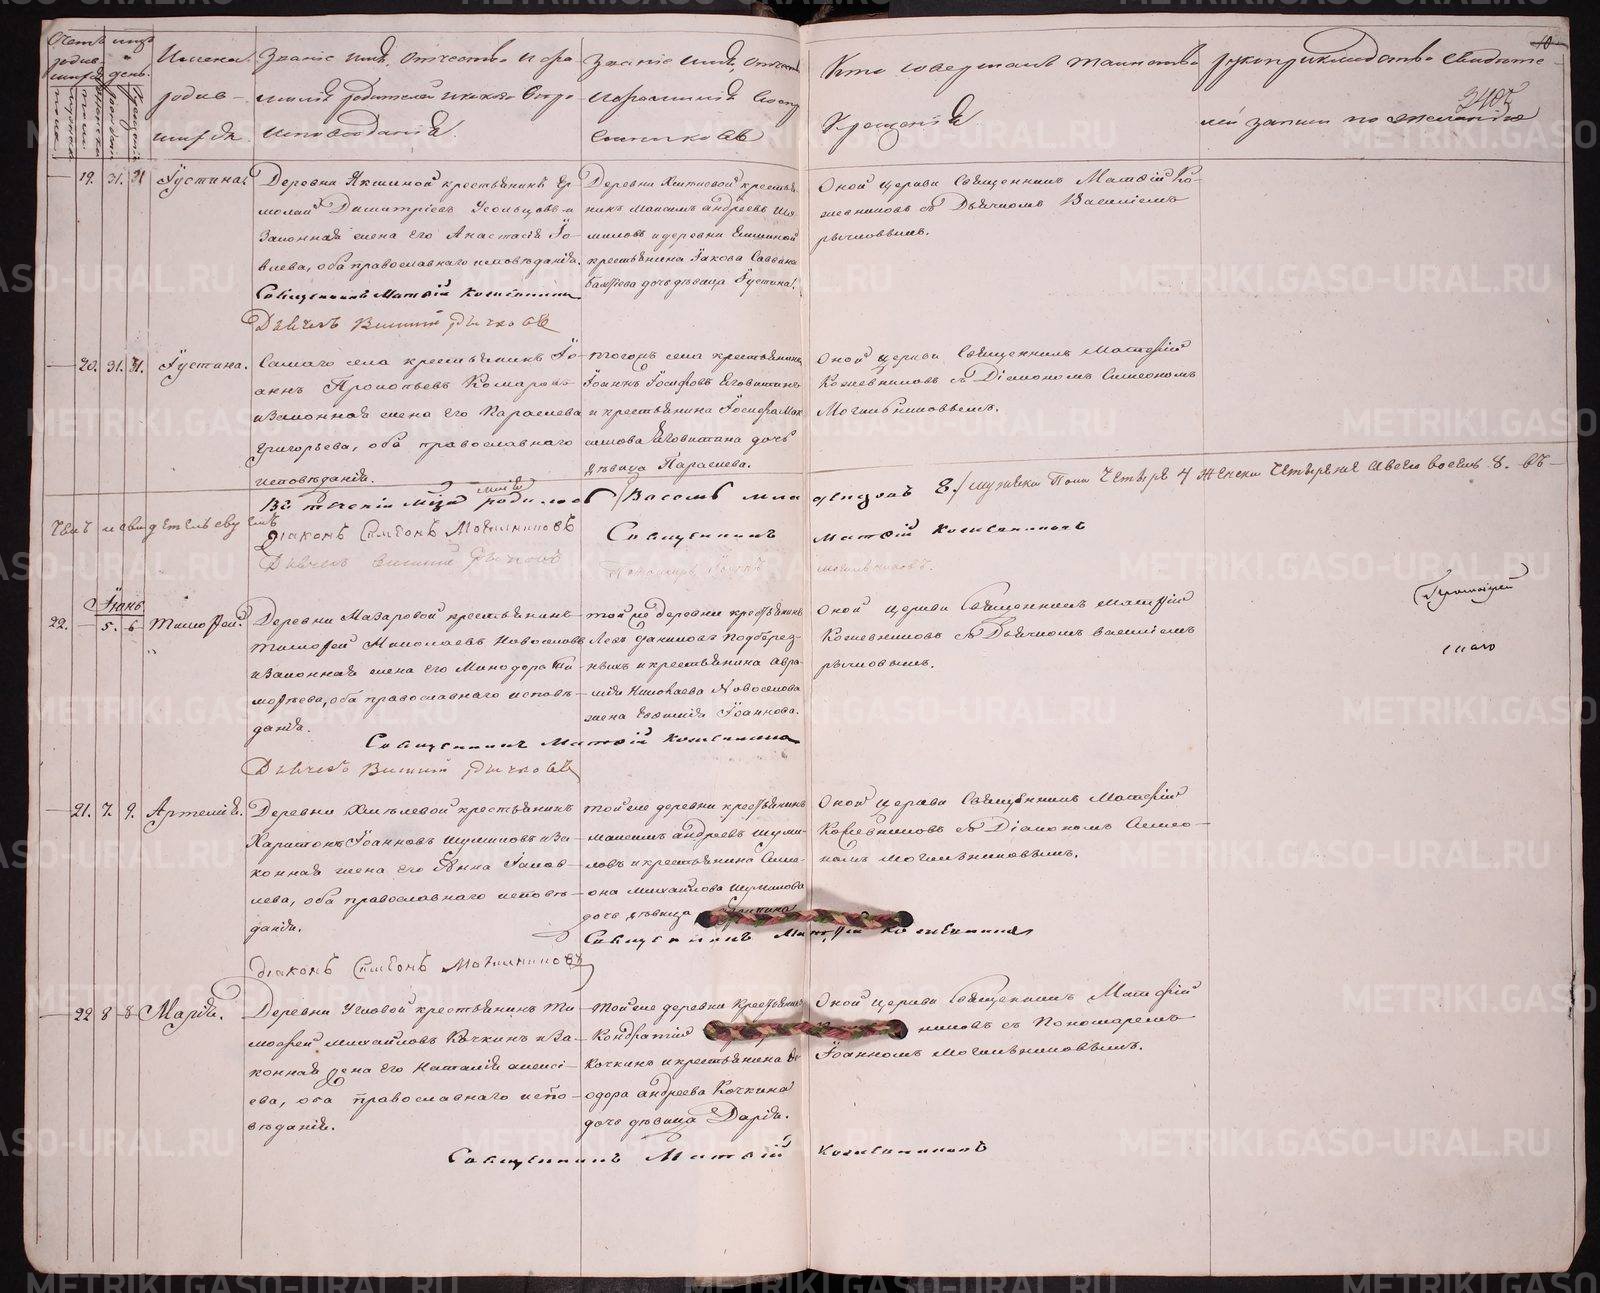 Счетъ родив-шихся
Имена родив-шихся
Званіе имя, отчество и фамилія родителей и какого вѣро-исповѣданія.
Званіе имя, отчество и фамилія воспріемниковъ
Кто совершалъ таинство Крещенія
рукоприкладство свидѣте-лей записи по желанію
19. 31. 31 Іустина.
Деревни Якшиной крестьянинъ Ер-
молай Димитріевъ Усольцовъ и
Законная жена его Анастасія Іо-
влева, оба православнаго исповѣданія.
Деревни Хмелевой крестья-
нинъ Максимъ Андреевъ Шу-
миловъ и деревни Якшиной
крестьянина Іакова Саввина
дочь дѣвица Іустина.
Оной церкви Священникъ Матфій Ко-
жевниковъ съ Дьячкомъ Василіемъ
рычковымъ.
Священникъ Матфій Кожевников
Дьячекъ Василий рычковъ
20. 31. 31. Іустина.
Самаго села крестьянинъ Іо-
аннъ Прокопьевъ Комаровъ
и Законная жена его Параскева
Григорьева, оба православнаго
исповѣданія.
тогожъ села крестьянинъ
Іоаннъ Іосифовъ Еговитинъ
и крестьянина Іосифа Мак
симова Еговитина дочь
дѣвица Параскева.
Оной церкви Священникъ Матфій
Кожевниковъ съ Діакономъ Симеономъ
Могильниковымъ.
Въ теченіи Мѣсяца Маія родилось Восемь мла
денцовъ 8. мужеска Пола Четыре 4 Женска Четыре 4 всего восемь 8. въ
чемъ и свидетельствуемъ
Священникъ Матфій Кожевниковъ
Діаконъ Симеонъ Могильниковъ
Дьячекъ Василий Рычковъ
Пономарь Іоаннъ Могильниковъ.
Іюнь
22. 5. 6 Тимофей.
Деревни Макаровой крестьянинъ
Тимофей Николаевъ Новоселовъ
и Законная жена его Минодора Ти
мофеева, оба православнаго исповѣ-
данія.
той же деревни крестьянинъ
Левъ Даниловъ Подберез-
ныхъ и крестьянина Авра-
мія Николаева Новоселова
жена Евфимія Іоаннова.
Оной церкви Священникъ Матфій
Кожевниковъ съ Дьячкомъ Василіемъ
рычковымъ.
Священникъ Матфій Кожевников
Дьячекъ Василий рычковъ
21. 7. 9. Артемій.
Деревни Хмѣлевой крестьянинъ
Харитонъ Іоанновъ Шумиловъ и За-
конная жена его Анна Іаков-
лева, оба православнаго исповѣ-
данія.
той же деревни крестьянинъ
Максимъ Андреевъ Шуми-
ловъ и крестьянина Симе-
она Михайлова Шумилова
дочь дѣвица
Оной церкви Священникъ Матфій
Кожевниковъ съ Діакономъ Симео-
номъ Могильниковымъ.
Священникъ Матфій Кожевников
Діаконъ Симеонъ Могильниковъ
22 8 8 Марія.
Деревни Угловой крестьянинъ Ти
мофей Михайловъ Кочкинъ и За-
конная жена его Наталія Алексі-
ева, оба православнаго испо-
вѣданія.
той же деревни Крестьянинъ
Кондратій
Кочкинъ и крестьянина Ѳе
одора Андреева Кочкина
дочь дѣвица Дарія.
Оной церкви Священникъ Матфій
никовъ съ Пономаремъ
Іоанномъ Могильниковымъ.
Священникъ Матфій Кожевниковъ
METRIKI.GASO-URAL.RU